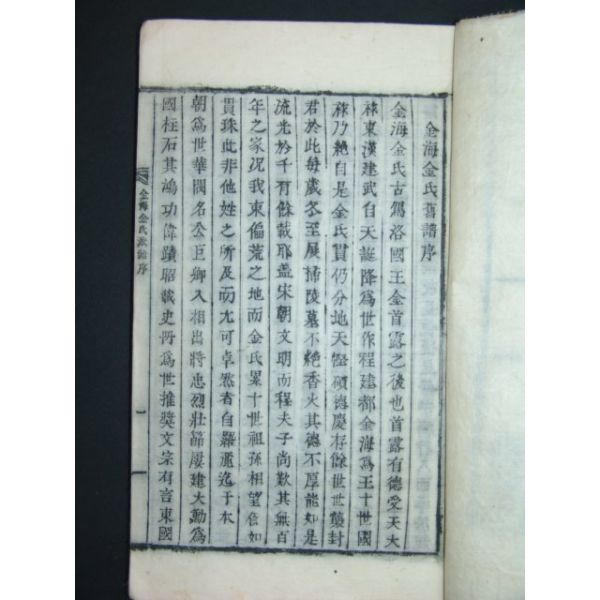 金海金氏舊譜序
金海金氏古駕洛國王金首露之後也首露有德受天大
祿東漢建武自天誕降爲世作程建都金海爲王十世國
祿乃絶自是金氏貫仍分地天慳碩德慶存餘世世襲封
君於此每歲冬至展掃陵墓不絶香火其德不厚能如是
流光於千有餘載耶盖宋朝文明而程夫子尚歎其無百
年之家况我東偏荒之地而金氏累十世祖孫相望信如
貫珠此非他姓之所及而尤可卓然者自羅麗迄于本
朝爲世華閥名公巨卿入相出將忠烈壯節屢建大勳爲
國柱石其鴻功偉蹟昭載史冊爲世推奬文宗有言東國
金海金氏派譜序